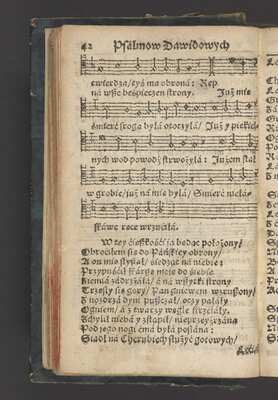 42 Psalmow Dawidowych
twierdzą/ tyś ma obroną: Rep
na wsze bespieczen strony. Już mię
śmierć sroga byłá otoczyłá/ Już y piekiel-
nych wod powodź strwożyłá: Jużem stał
w grobie/ już na mię byłá/ Smierć niełás-
káwe sece wrzuciłá.
W tey cięszkości ja będąc położony/
Obrociłem się do Páńskiey obrony/
A on mię słyszał/ siedząc ná niebie:
Przypuścił skárgę moję do siebie
Ziemiá zádrżáłá/ á ná wszytki strony
Trzęsły się gory/ Pan gniewem wzruszony/
Z nozdrzy dym puszczał/ oczy pałáły
Ogniem/ á z twarzy węgle strzeláły.
Schylił niebá y zstąpił/
Pod jego nogi ćmá byłá posłána:
Siadł ná Cherubiech służyć gotowych/